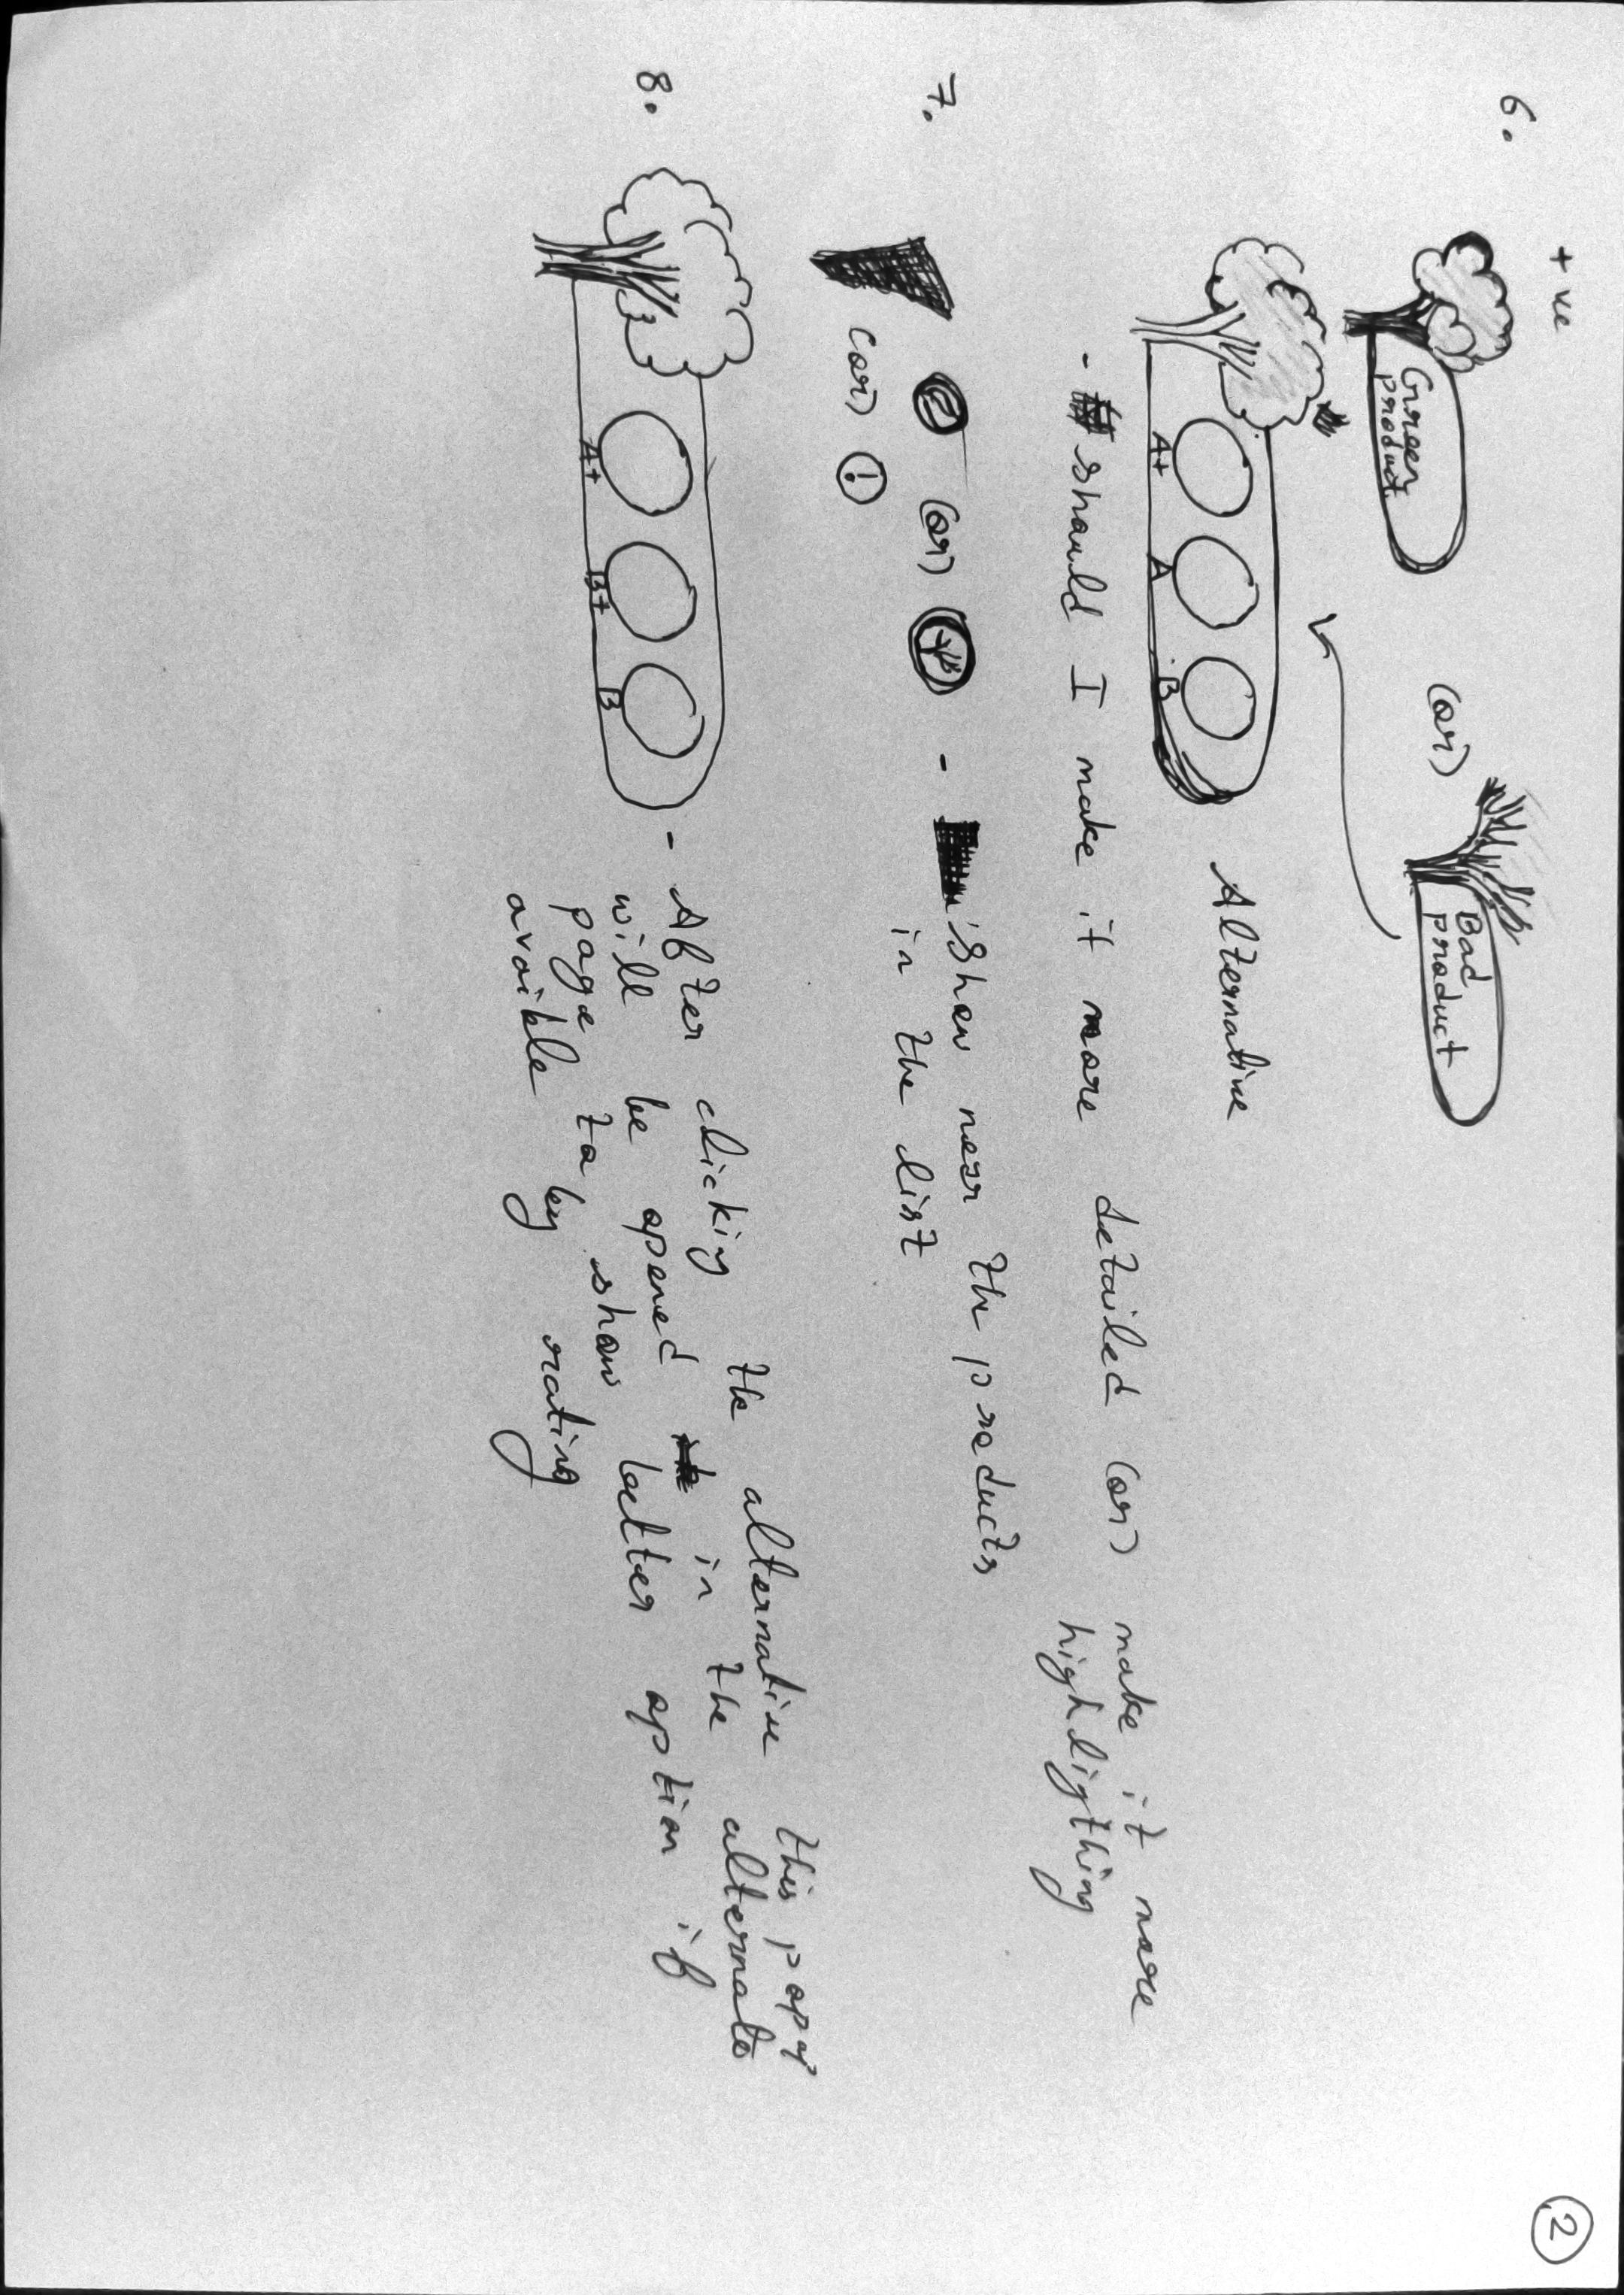 2
+ve
6.
Green
product
(or)
Bad
product
A+ A B
Alternative
- should I make it more detailed (or) make it more
highligthing
7.
(or)
- show near the products
in the list
(or) !
8.
A+ B+ B
- After clicking the alternative this
will be opened in the alternate
page to show better option if
avaible by rating